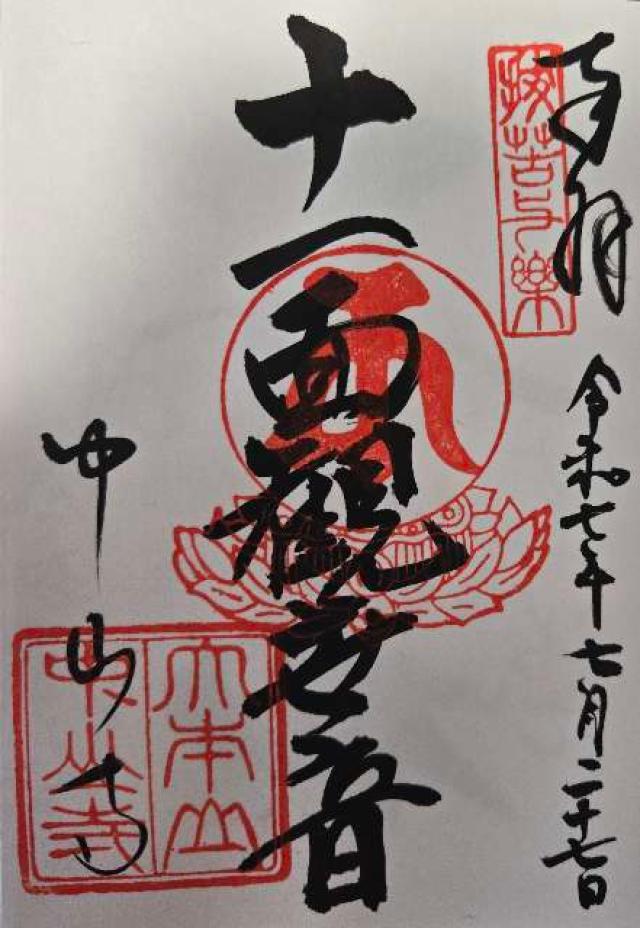 奉拝
抜苦与楽
令和七年七月二十七日
十一面観世音
中山寺
大本山
中山寺